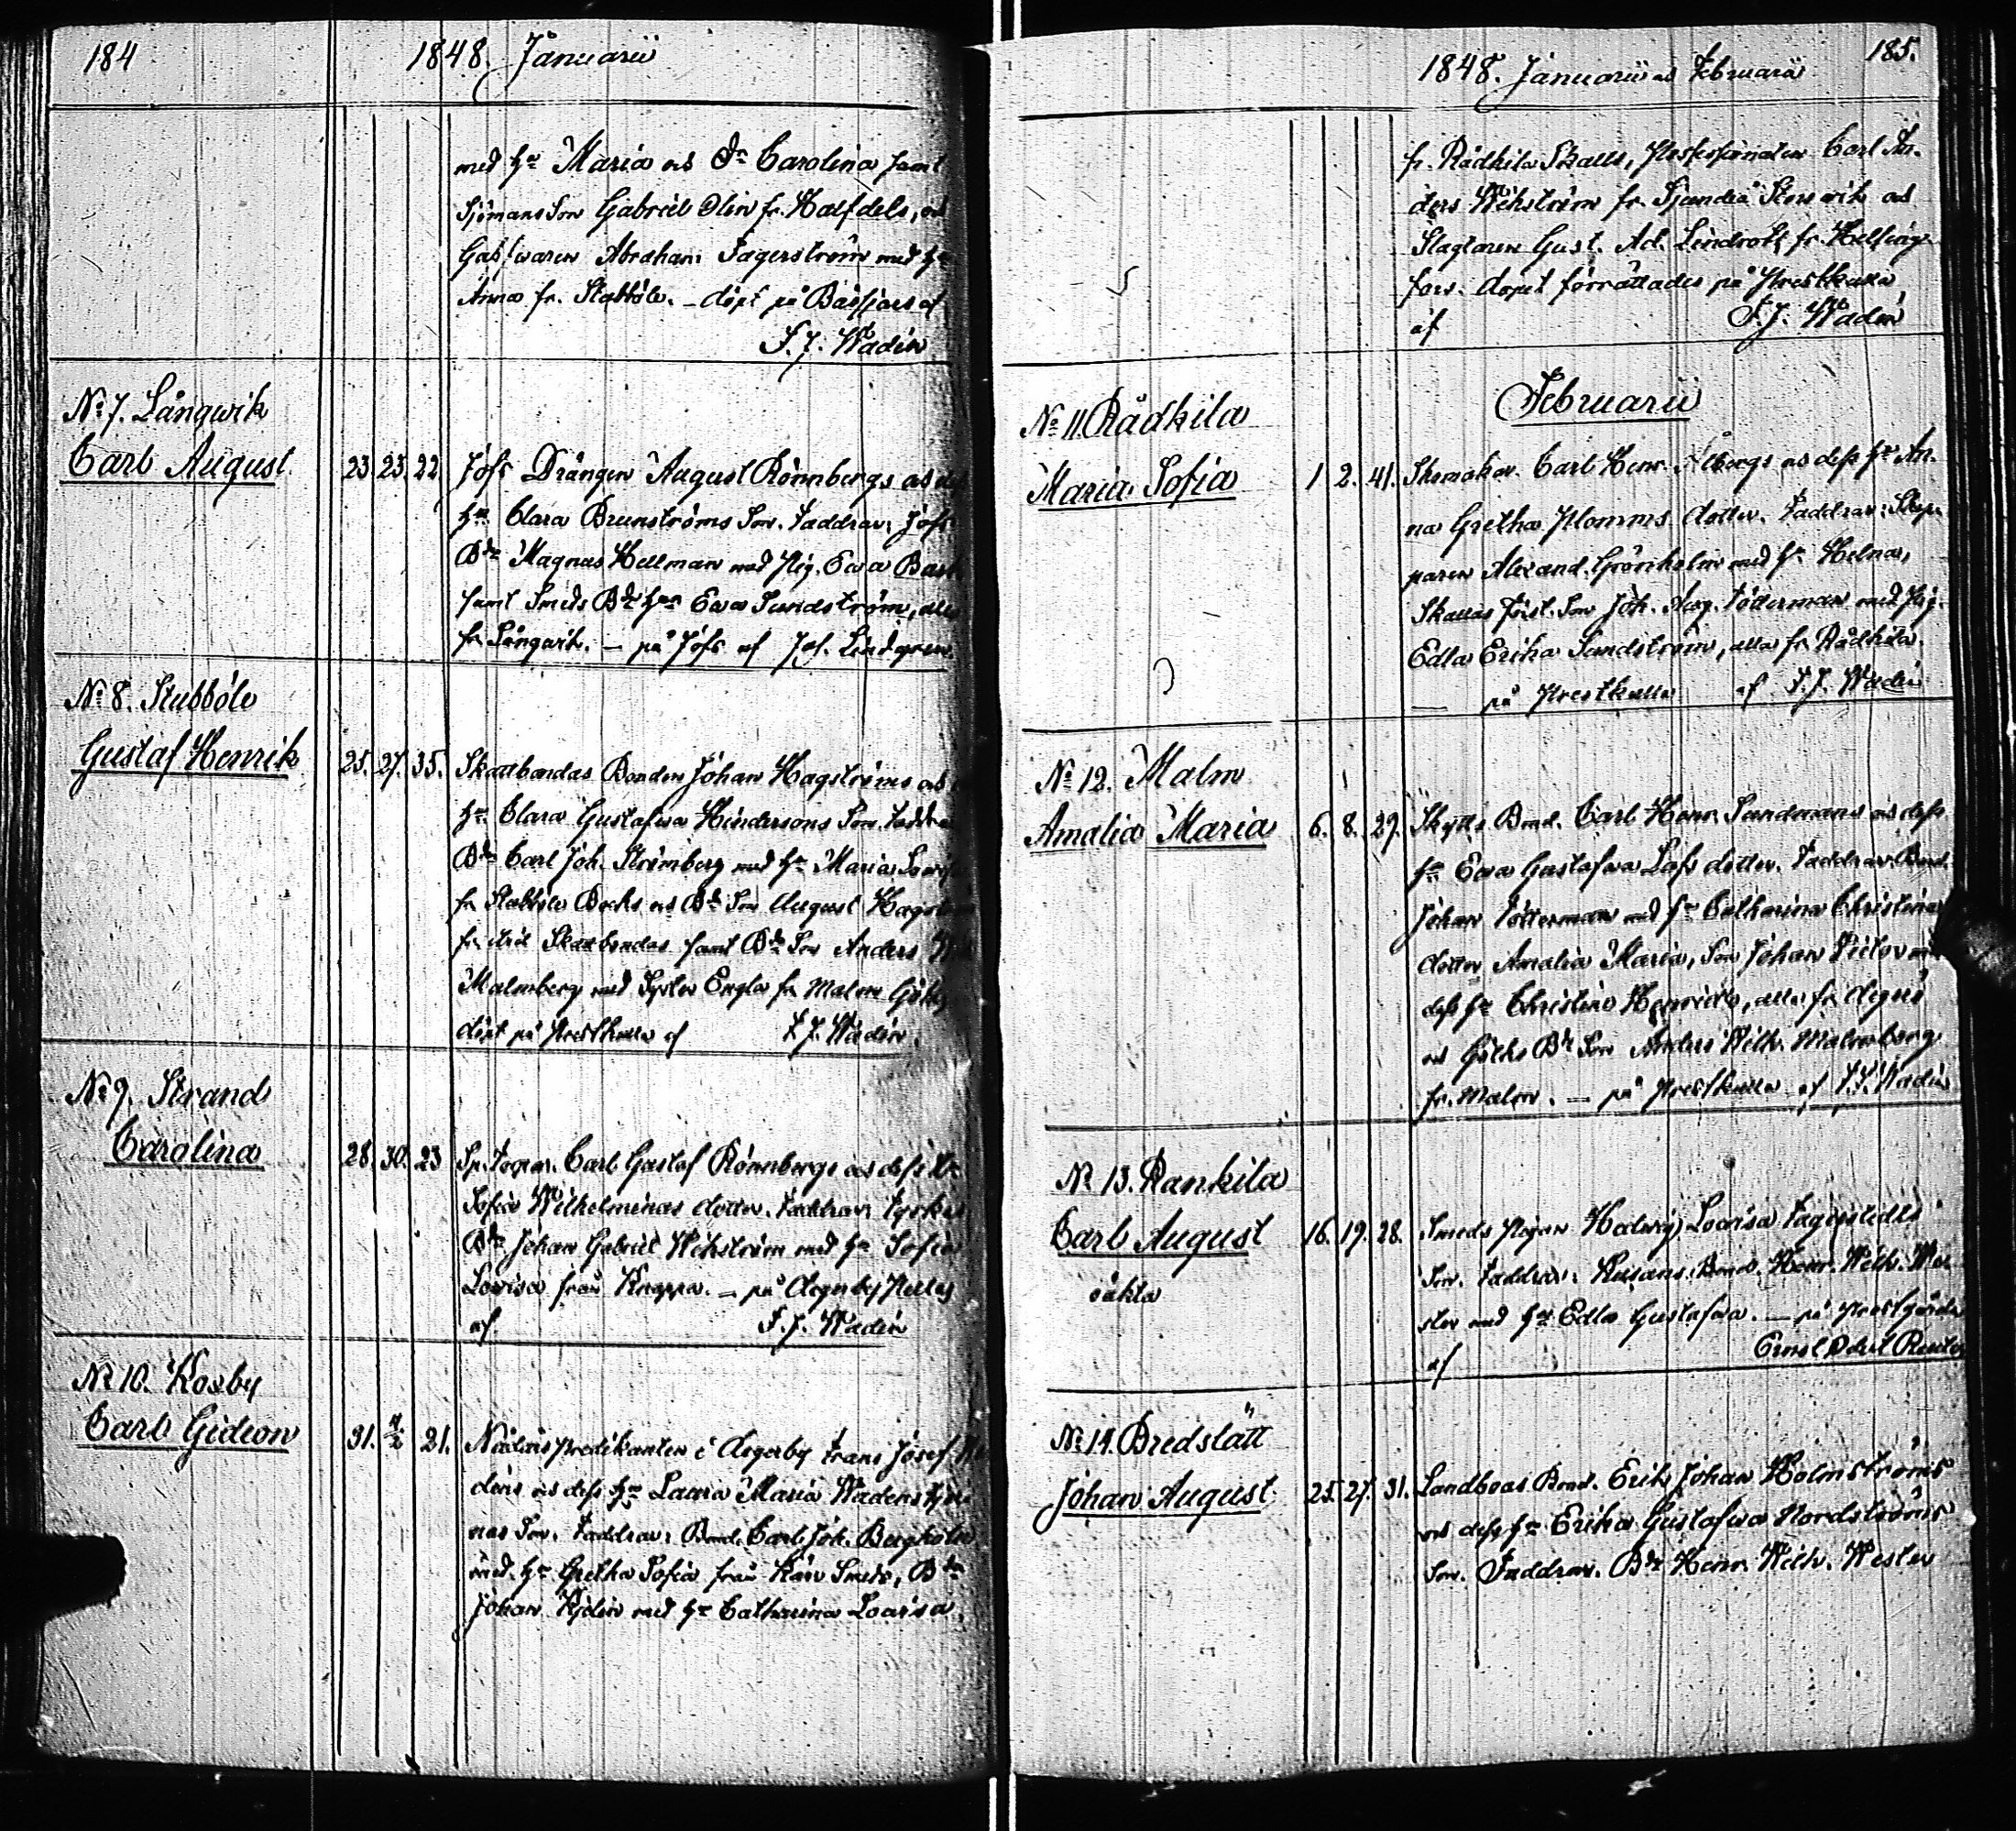 184
1848 Januarii
med hu Maria och Dr Carolina samt
Sjömans Son Gabriel Olin fr. Halfdels, och
Abraham Fagerström med hu
Anna fr. Stubböle. – döpt på Båssjars af
F. J. Wadén
No 7. Långwik
Carl August 23. 23. 22. Jofs Drängen August Rönnbergs och
hu Clara Brunströms Son. Faddrar: Jofs
Bdn Magnus Hellman med Pig. Ewa
samt Smeds Bde hu Ewa Sundström, alla
fr. Långwik. – på Jofs af Jos. Lindgren
No 8. Stubböle
Gustaf Henrik 25. 27. 35. Skattbondas Bonden Johan Hagströms och
hu Clara Gustafwa Hindersons Son.
Bdn Carl Joh. Strömberg med hu Maria
fr. Stubböle Backs och Bde Son August
fr. Skattbondas samt Bde Son Anders
Malmberg med Syster Engla fr. Malm
döpt på Prestkulla af F. J. Wadén.
No 9. Strand
Carolina 28. 30. 23 Carl Gustaf Rönnbergs och dess
Sofia Wilhelminas dotter. Faddrar:
Bdn Johan Gabriel Wikström med hu Sofia
Lovisa från Knappa. – på Degerby
af F. J. Wadén
No 10. Kosby
Carl Gideon 31. 4/2 21. Nådårs Predikanten i Degerby Frans Josef
déns och dess hu Laura Maria
nas Son. Faddrar: Bond. Carl Joh. Bergholm
med hu Gretha Sofia från Smeds, Bdn
Johan med hu Catharina Lovisa
185.
1848. Januarii och Februarii
fr. Rådkila Skalls, Carl An-
ders Wikström fr. Sjundeå och
Slagtaren Gust. Ad. Lindroth fr. Helsing-
fors. dopet förrättades på Prestkulla
af F. J. Wadén
Februarii
No 11. Rådkila
Maria Sofia 1 2. 41. Skomakar. Carl Henr. och dess hu An-
na Gretha Plomms dotter. Faddrar: Skep-
paren Alexand. Grönholm med hu Helena,
Skallas Son Joh. Aug. Tötterman med Pig.
Edla Erika Sundström, alla fr. Rådkila.
– på Prestkulla af F. J. Wadén
No 12. Malm
Amalia Maria 6. 8. 29. Skytts Bond. Carl Henr. Sundmans och dess
hu Ewa Gustafwa dotter. Faddrar: Bond.
Johan Tötterman med hu Catharina Christina
dotter Amalia Maria, Son Johan med
dess hu Christina, alla fr.
och Göks Bde Son Anders Wilh. Malmberg
fr. Malm. – på Prestkulla af F. J. Wadén
No 13. Rankila
Carl August 16. 19. 28. Smeds Pigan Hedwig Lovisa Fagerstedts
oäkta Son. Faddrar: Bond. Henr. Wilh. Wes-
ter med hu Edla Gustafwa. – på Prestgården
af
No 14. Bredslätt
Johan August 25. 27. 31. Landboas Bond. Erik Johan Holmströms
och dess hu Erika Gustafwa Nordströms
Son. Faddrar. Bdr Henr. Wilh. Wester